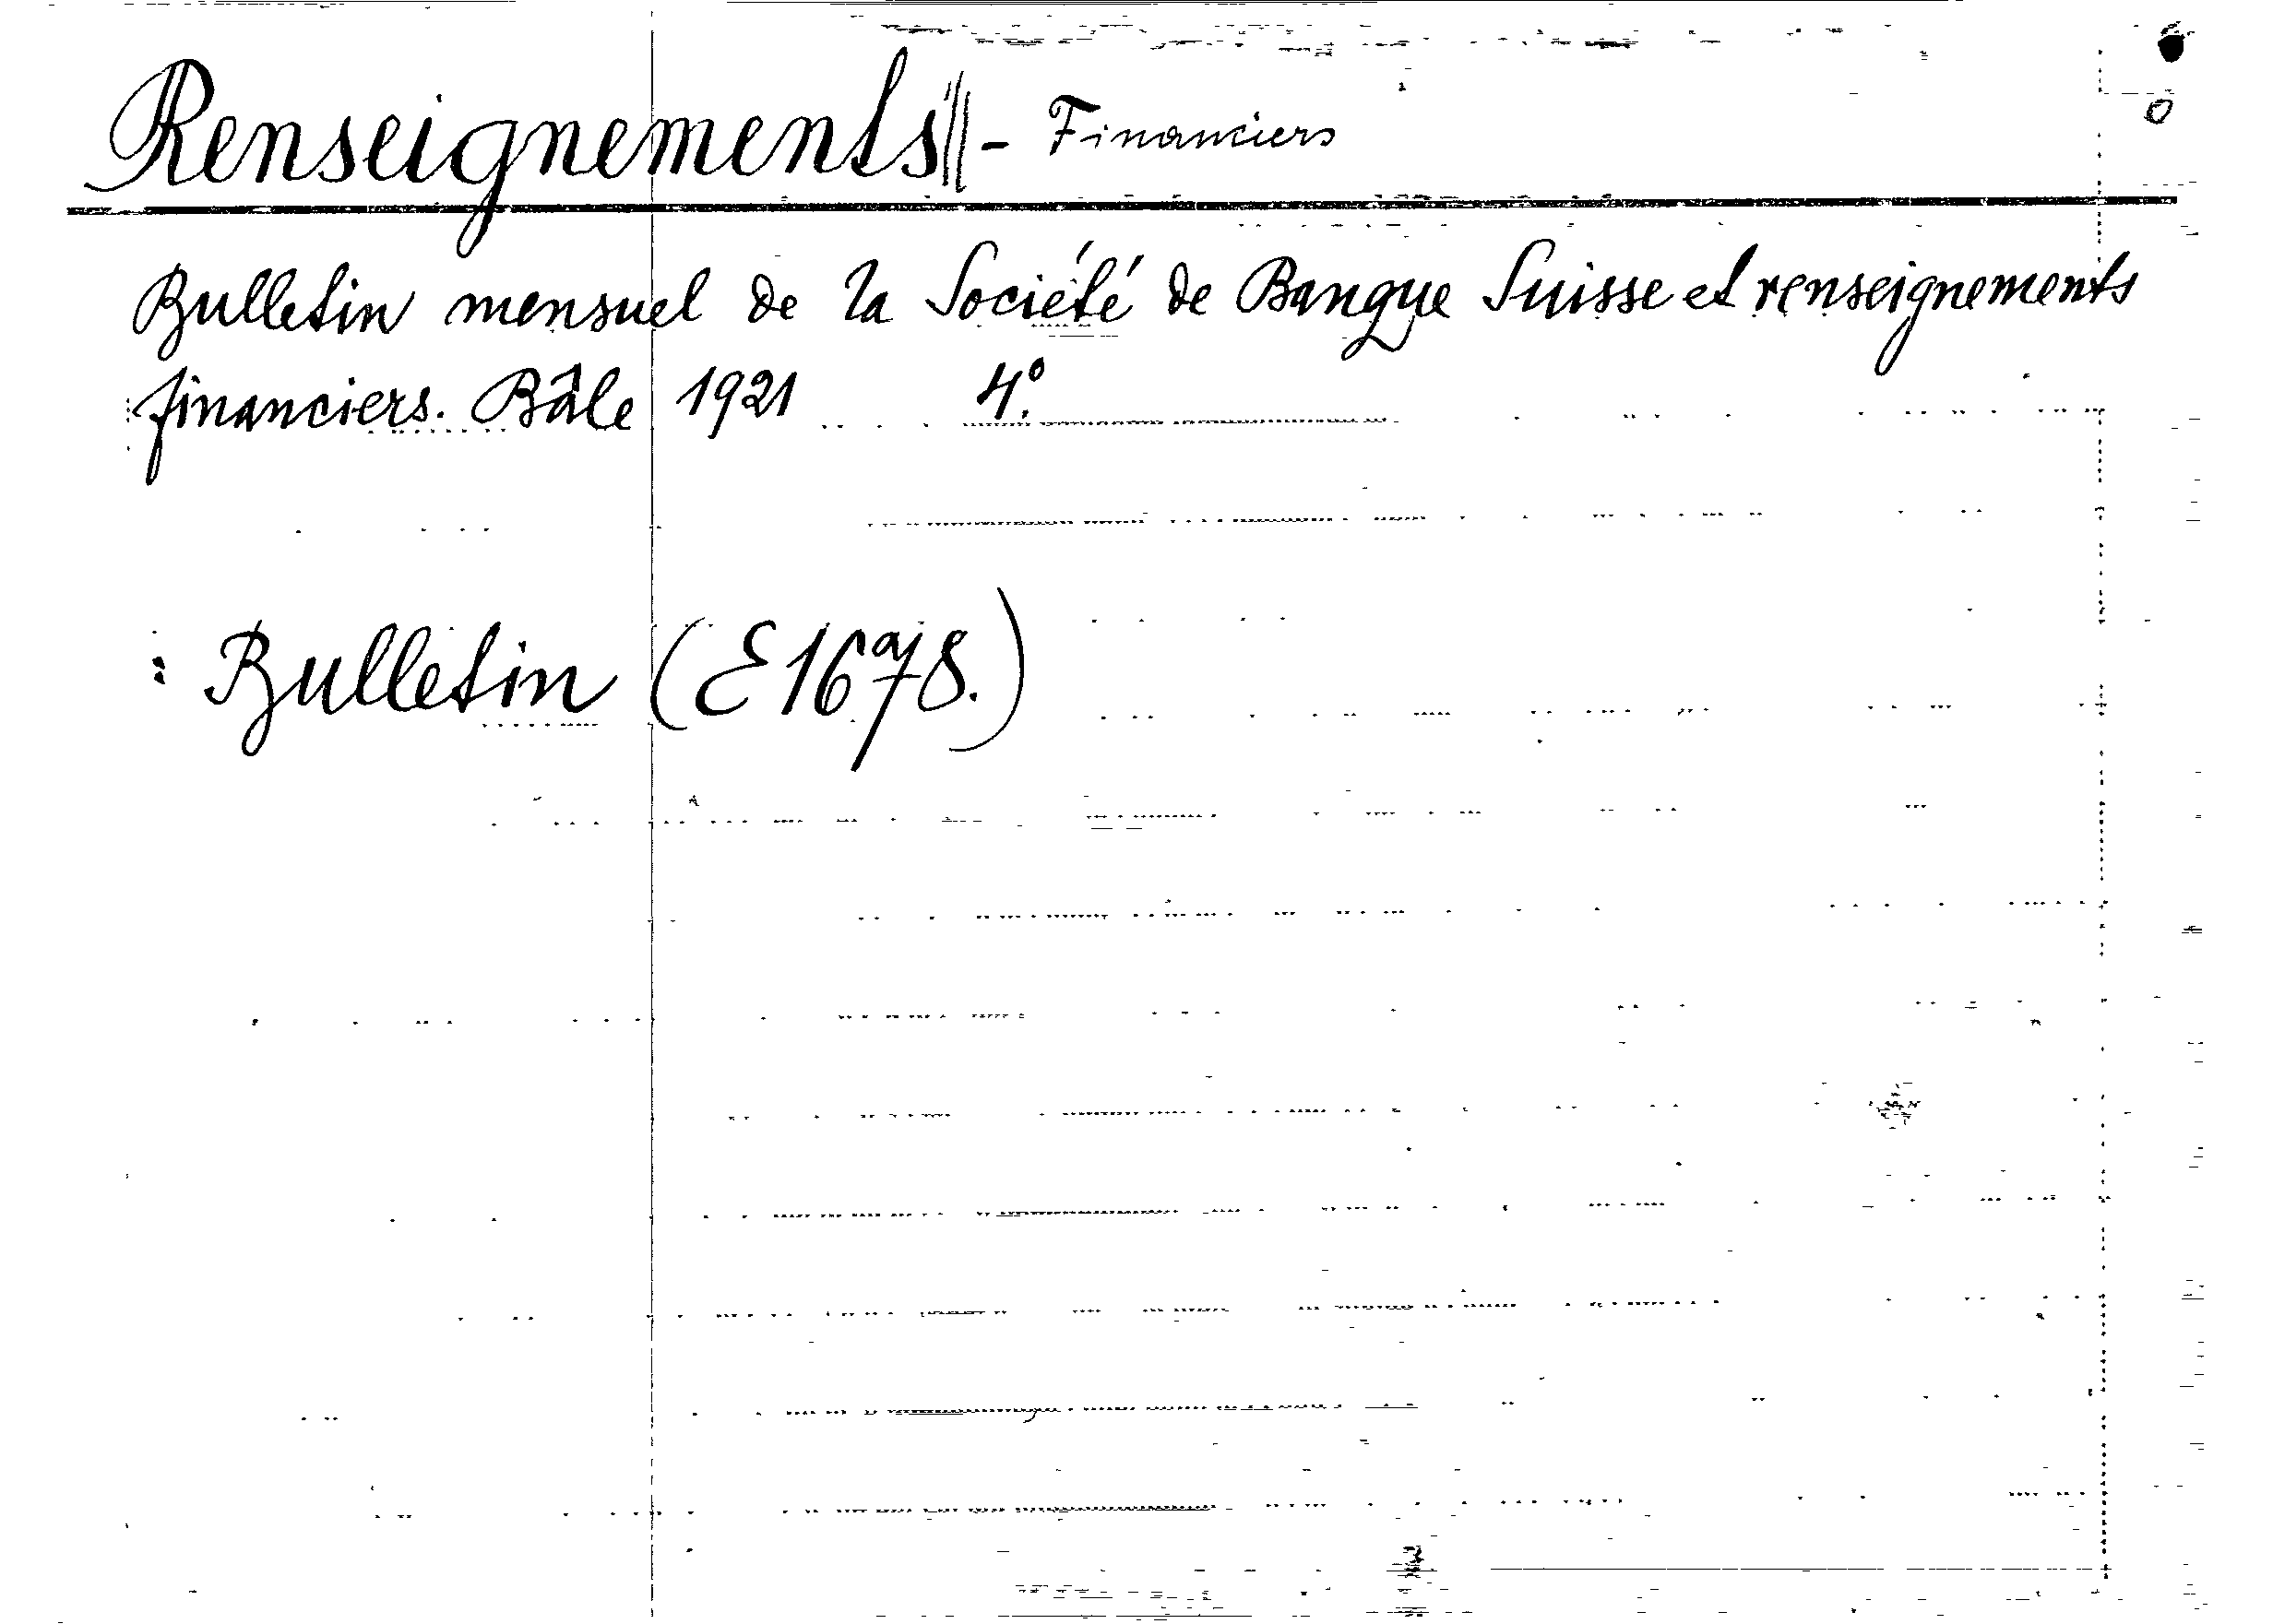 Renseignements || - Financiers
Bulletin mensuel de la Société de Banque Suisse et renseignements
financiers. Bâle 1921 4°.
: Bulletin (E 16 a/78.)